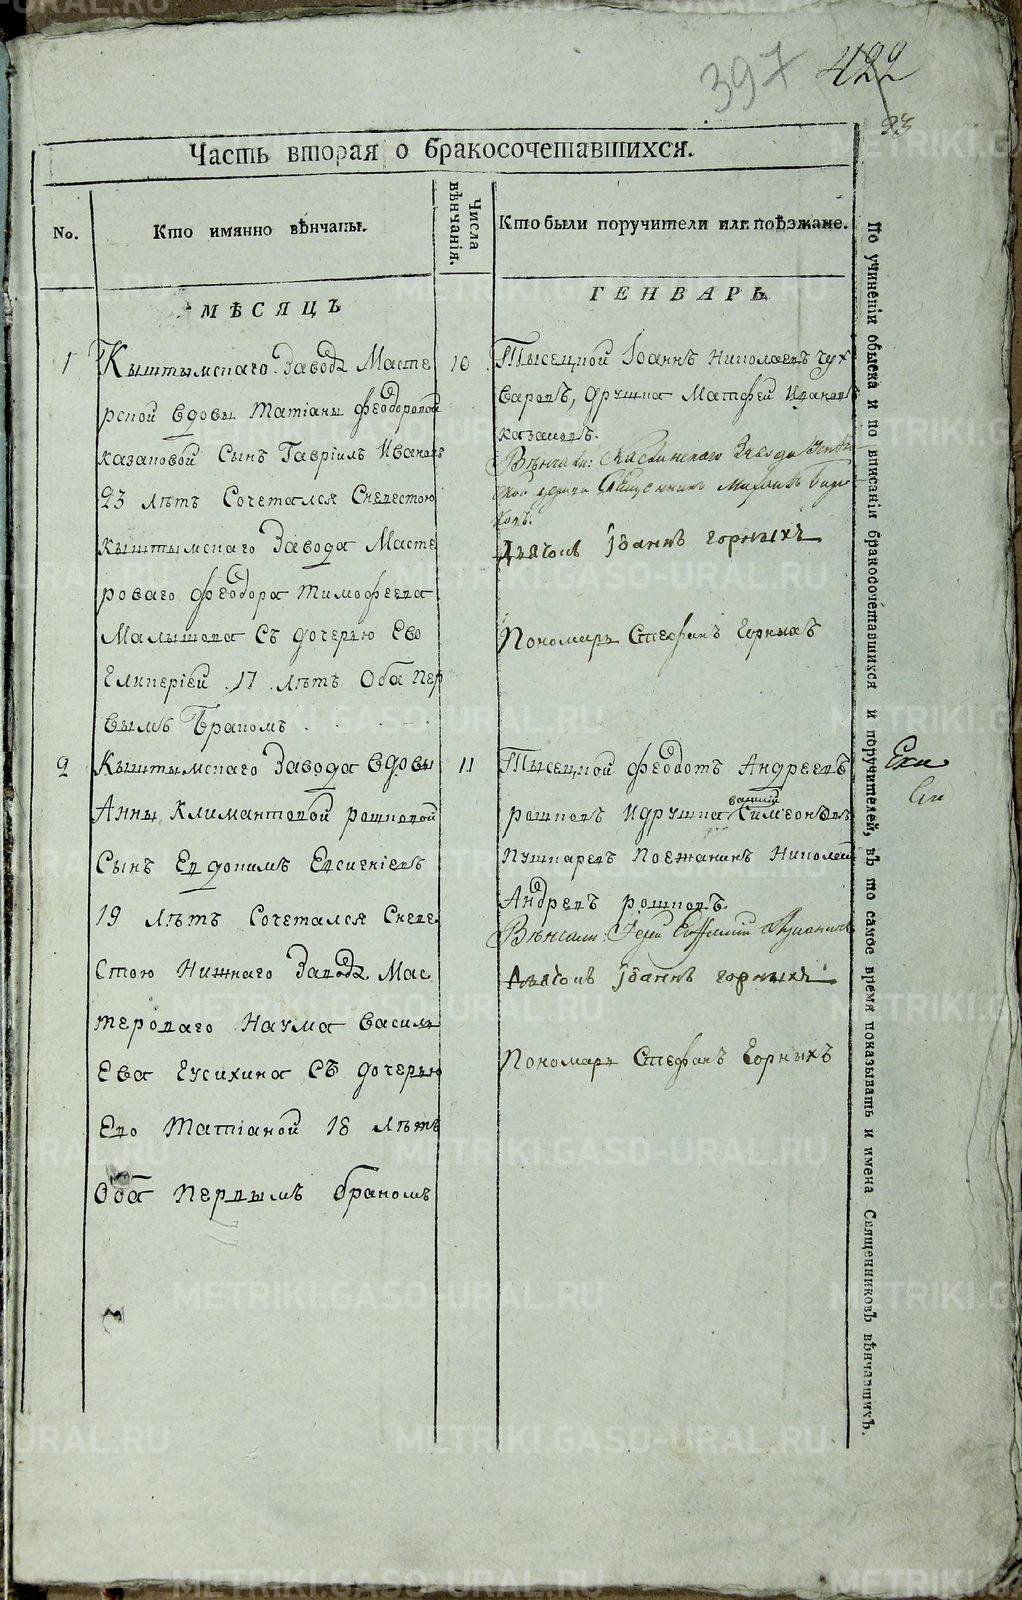 397 422
93
Часть вторая о бракосочетавшихся.
No.
Кто имянно вѣнчаны.
Числа вѣнчанія.
Кто были поручители или поѣзжане.
МѢСЯЦЪ
ГЕНВАРЬ
1 Кыштымскаго Завода Масте
рской вдовы Татіаны Феодоровой
казаковой Сынъ Гавріилъ Ивановъ
23 лѣтъ Сочетался Сневестою
кыштымскаго Завода Масте
роваго Феодора Тимофеева
Малышева Съ дочерью Ево
Гликеріей 17 лѣтъ Оба пер
вымъ Бракомъ
10
Тысецкой Іоаннъ Николаевъ
, дружка Матфей Ивановъ
казаковъ.
Вѣнчали: Каслинскаго Завода
Священникъ Михаилъ
Діаконъ Іоаннъ горныхъ
Пономарь Стефанъ Горныхъ
2 Кыштымскаго Завода вдовы
Анны Климантовой рошковой
Сынъ Евдокимъ Евсигніевъ
19 лѣтъ Сочетался Сневе
стою Нижнаго Завода Мас
тероваго Наума Василь
Ева Гусихина Съ дочерью
Ево Татіаной 18 лѣтъ
Оба первымъ бракомъ
11
Тысецкой Феодотъ Андреевъ
рошковъ Идружка Симеонъ
пушкаревъ Поежанинъ Николай
Андреевъ рошковъ
Вѣнчали: Іерей Евфимій
Діаконъ Іоаннъ горныхъ
Пономарь Стефанъ Горныхъ
По учиненіи обыска и по вписаніи бракосочетавшихся и поручителей, въ то самое время показывать и имена Священниковъ вѣнчавшихъ.
METRIKI.GASO-URAL.RU